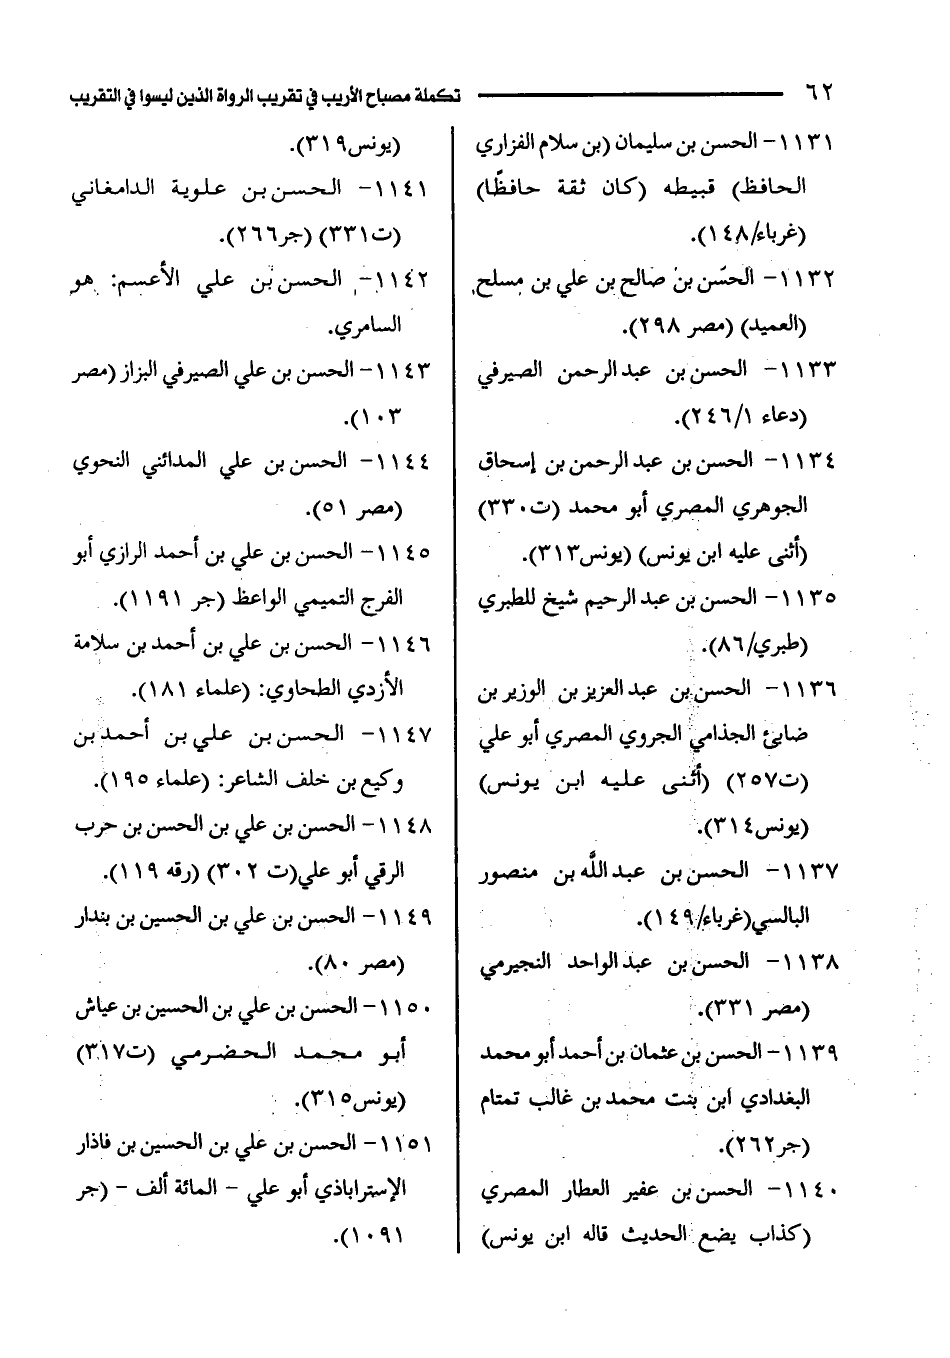 ٦٢ تكملة مصباح الأريب في تقريب الرواة الذين ليسوا في التقريب
١١٣١- الحسن بن سليمان (بن سلام الفزاري
الحافظ) قبيطه (كان ثقة حافظًا)
(غرباء/١٤٨).
١١٣٢- الحسن بن صالح بن علي بن مسلح
(العميد) (مصر ٢٩٨).
١١٣٣- الحسن بن عبد الرحمن الصيرفي
(دعاء ٢٤٦/١).
١١٣٤- الحسن بن عبد الرحمن بن إسحاق
الجوهري المصري أبو محمد (ت٣٣٠)
(أثنى عليه ابن يونس) (يونس٣١٣).
١١٣٥- الحسن بن عبد الرحيم شيخ للطبري
(طبري/٨٦).
١١٣٦- الحسن بن عبد العزيز بن الوزير بن
ضابئ الجذامي الجروي المصري أبو علي
(ت٢٥٧) (أثنى عليه ابن يونس)
(يونس٣١٤).
١١٣٧- الحسن بن عبد اللَّه بن منصور
البالسي(غرباء/١٤٩).
١١٣٨- الحسن بن عبد الواحد النجيرمي
(مصر ٣٣١).
١١٣٩- الحسن بن عثمان بن أحمد أبو محمد
البغدادي ابن بنت محمد بن غالب تمتام
(جر٢٦٢).
١١٤٠- الحسن بن عفير العطار المصري
(كذاب يضع الحديث قاله ابن يونس)
(يونس٣١٩).
١١٤١- الحسن بن علوية الدامغاني
(ت٣٣١) (جر٢٦٦).
١١٤٢- الحسن بن علي الأعسم: هو
السامري.
١١٤٣- الحسن بن علي الصيرفي البزاز (مصر
١٠٣).
١١٤٤- الحسن بن علي المدائني النحوي
(مصر ٥١).
١١٤٥- الحسن بن علي بن أحمد الرازي أبو
الفرج التميمي الواعظ (جر ١١٩١).
١١٤٦- الحسن بن علي بن أحمد بن سلامة
الأزدي الطحاوي: (علماء ١٨١).
١١٤٧- الحسن بن علي بن أحمد بن
وكيع بن خلف الشاعر: (علماء ١٩٥).
١١٤٨- الحسن بن علي بن الحسن بن حرب
الرقي أبو علي(ت ٣٠٢) (رقه ١١٩).
١١٤٩- الحسن بن علي بن الحسين بن بندار
(مصر ٨٠).
١١٥٠- الحسن بن علي بن الحسين بن عياش
أبو محمد الحضرمي (ت٣١٧)
(يونس٣١٥).
١١٥١- الحسن بن علي بن الحسين بن فاذار
الإستراباذي أبو علي - المائة ألف - (جر
١٠٩١).